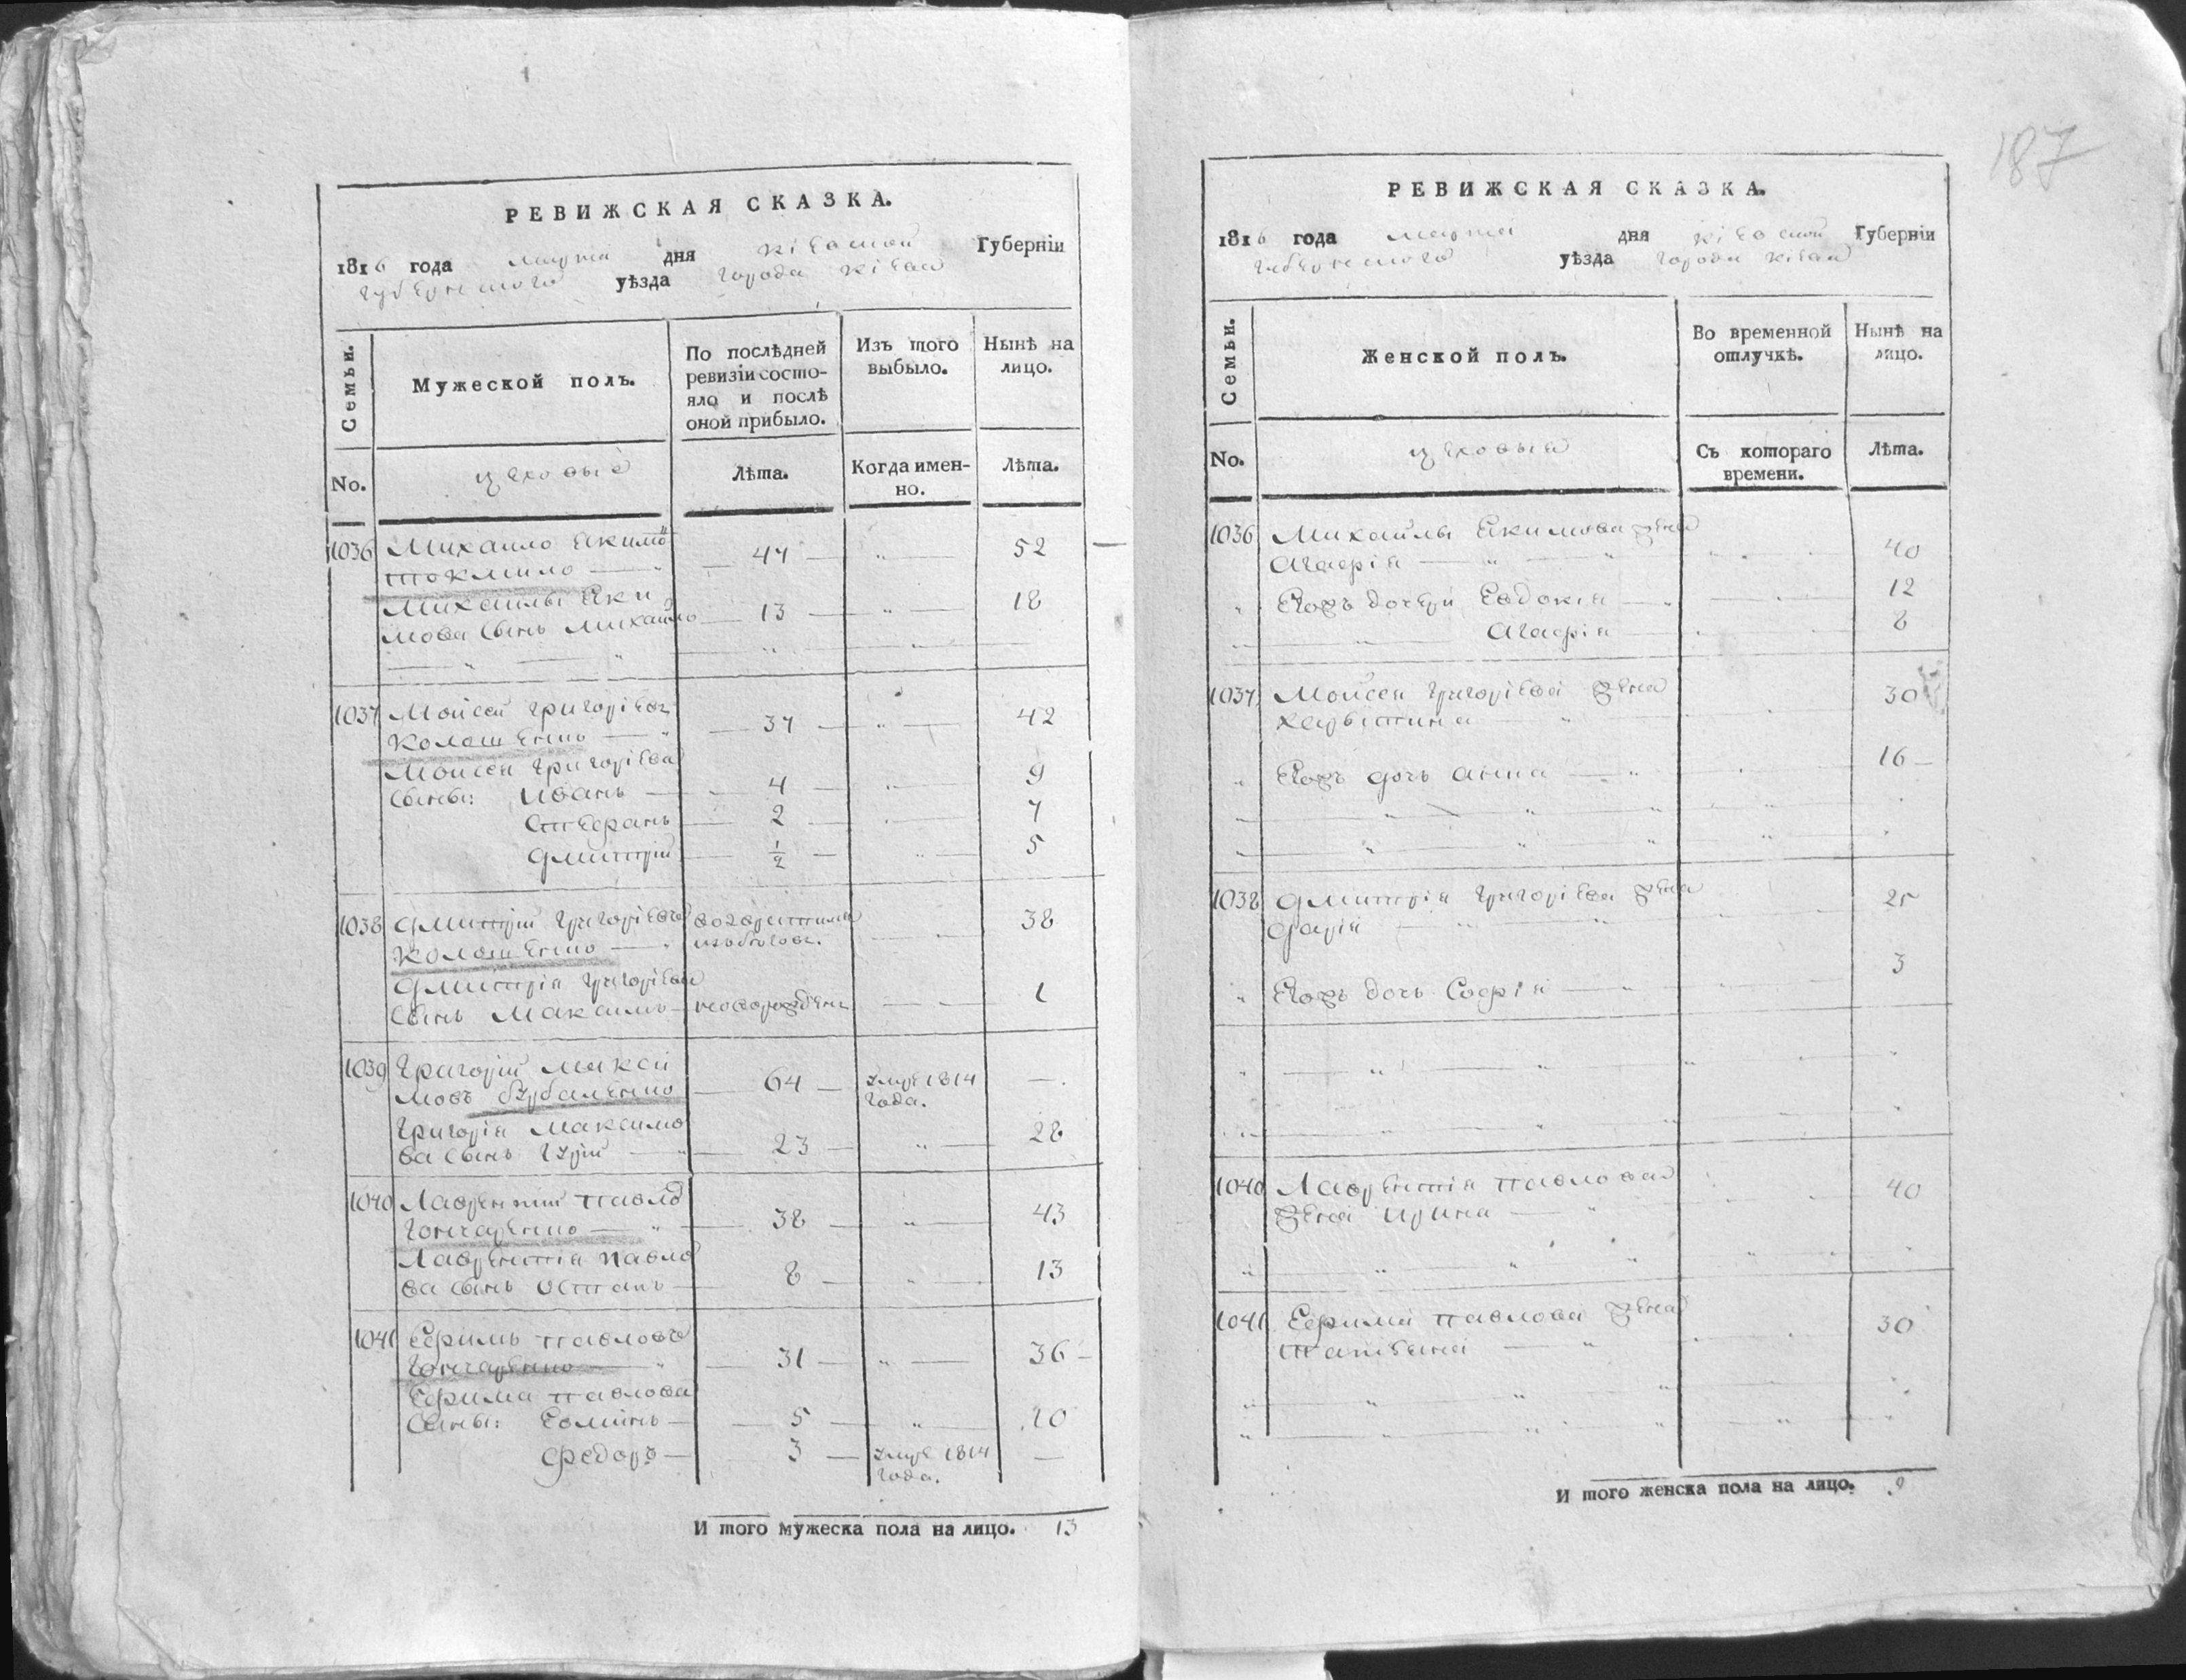 РЕВИЖСКАЯ СКАЗКА.
1816 года марта дня Кіевской Губерніи
губернского уѣзда города Кіева
Семьи.
Мужеской полъ.
По послѣдней
ревизіи состо-
яло и послѣ
оной прибыло.
Изъ того
выбыло.
Нынѣ на
лицо.
No.
цеховые
Лѣта.
Когда имен-
но.
Лѣта.
1036 Михаило Екимо 47 " 52
токмило
Михаилы Еки
мова сынъ Михаило 13 " 18
1037 Мойсей Григоріевъ 37 " 42
Моисея Григоріева
сыны: Иванъ 4 9
Стефанъ 2 7
Дмитрій ½ 5
1038 Дмитрій Григоріевъ 38
Дмитрія Григоріева
сынъ Максимъ новорожденъ 1
1039 Григорій Макси 64 умре 1814
мовъ года.
Григорія Максимо
ва сынъ Гурій 23 " 28
1040 Лаврентий Павло
Гончаренко 38 " 43
Лаврентія Павло
ва сынъ Остапъ 8 13
1041 Ефимъ Павловъ
Гончаренко 31 " 36
Ефима Павлова
сыны: Еоминъ 5 " 10
Федоръ 3 умре 1814
года.
И того мужеска пола на лицо. 13
187
РЕВИЖСКАЯ СКАЗКА.
1816 года марта дня Кіевской Губерніи
губернского уѣзда города Кіева
Семьи.
Женской полъ.
Во временной
отлучкѣ.
Нынѣ на
лицо.
No.
цеховыя
Съ котораго
времени.
Лѣта.
1036 Михайлы Екимова жена
Агафія 40
Еговъ дочери Евдокія 12
Агафія 8
1037 Мойсея Григоріева жена 30
Еговъ дочь Анна 16
1038 Дмитрія Григоріева жена 25
Дарія
Еговъ дочь Софія 3
1040 Лаврентія Павлова 40
жена Ирина
1041 Ефима Павлова жена 30
Татіана
И того женска пола на лицо. 9